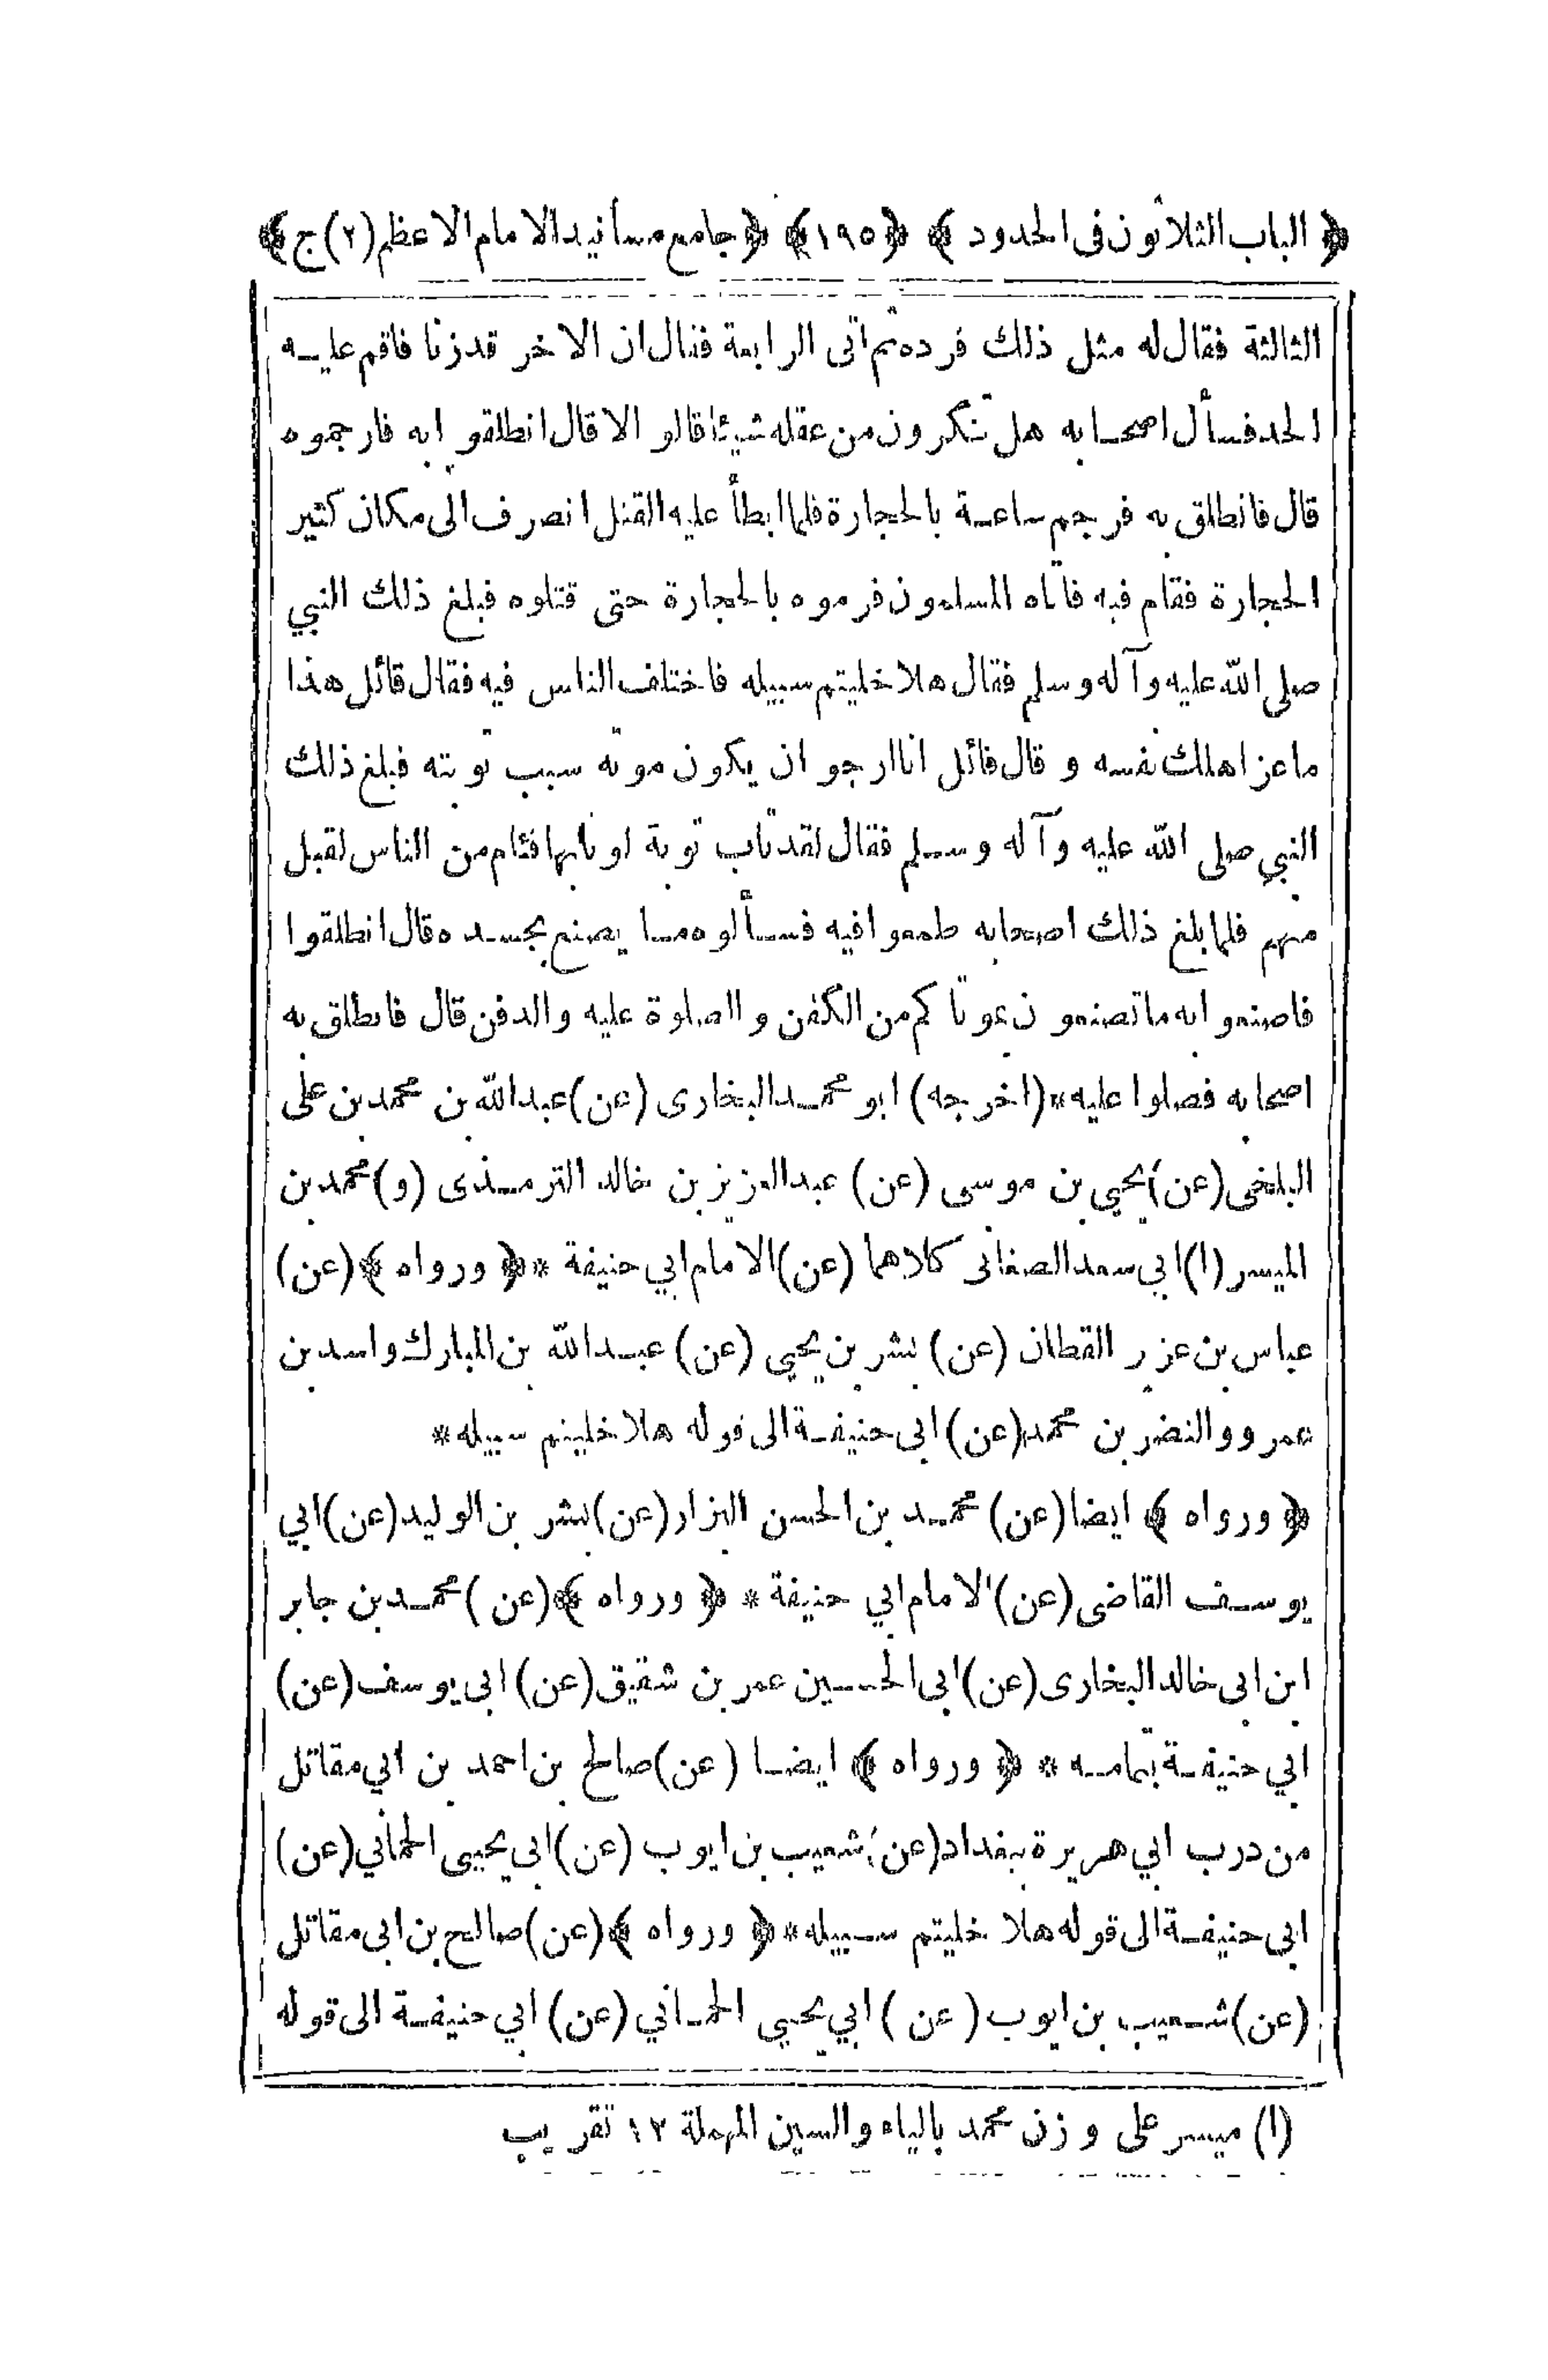 ﴿ الباب الثلاثون فى الحدود ﴾ ﴿١٩٥﴾ ﴿جامع مسانيد الامام الاعظم (٢) ج﴾
الثالثة فقال له مثل ذلك فرده ثم اتى الرابعة فقال ان الاخر قد زنا فاقم عليه
الحد فسأل اصحابه هل تنكرون من عقله شيئا قالوا لا قال انطلقوا به فارجموه
قال فانطلق به فرجم ساعة بالحجارة فلما ابطأ عليه القتل انصرف الى مكان كثير
الحجارة فقام فيه فاتاه المسلمون فرموه بالحجارة حتى قتلوه فبلغ ذلك النبي
صلى الله عليه وآله وسلم فقال هلا خليتم سبيله فاختلف الناس فيه فقال قائل هذا
ماعز اهلك نفسه و قال قائل انا ارجو ان يكون موته سبب توبته فبلغ ذلك
النبي صلى الله عليه وآله وسلم فقال لقد تاب توبة لو تابها فئام من الناس لقبل
منهم فلما بلغ ذلك اصحابه طمعوا فيه فسألوه ما يصنع بجسده قال انطلقوا
فاصنعوا به ما تصنعون بموتاكم من الكفن و الصلوة عليه والدفن قال فانطلق به
اصحابه فصلوا عليه*(اخرجه) ابو محمد البخارى (عن) عبدالله بن محمد بن على
البلخى (عن) يحيى بن موسى (عن) عبدالعزيز بن خالد الترمذى (و) محمد بن
الميسر (١) ابي سعد الصغانى كلاهما (عن) الامام ابي حنيفة *﴿ ورواه ﴾ (عن)
عباس بن عزير القطان (عن) بشر بن يحيى (عن) عبدالله بن المبارك واسد بن
عمرو والنضر بن محمد (عن) ابى حنيفة الى قوله هلا خليتم سبيله *
﴿ ورواه ﴾ ايضا (عن) محمد بن الحسن البزار (عن) بشر بن الوليد (عن) ابي
يوسف القاضى (عن) الامام ابي حنيفة * ﴿ ورواه ﴾ (عن) محمد بن جابر
ابن ابى خالد البخارى (عن) ابى الحسين عمر بن شقيق (عن) ابى يوسف (عن)
ابي حنيفة بتمامه * ﴿ ورواه ﴾ ايضا (عن) صالح بن احمد بن ابي مقاتل
من درب ابي هريرة ببغداد (عن) شعيب بن ايوب (عن) ابى يحيى الحماني (عن)
ابى حنيفة الى قوله هلا خليتم سبيله *﴿ ورواه ﴾ (عن) صالح بن ابى مقاتل
(عن) شعيب بن ايوب (عن) ابي يحيى الحماني (عن) ابي حنيفة الى قوله
(١) ميسر على وزن محمد بالياء والسين المهملة ١٢ تقريب